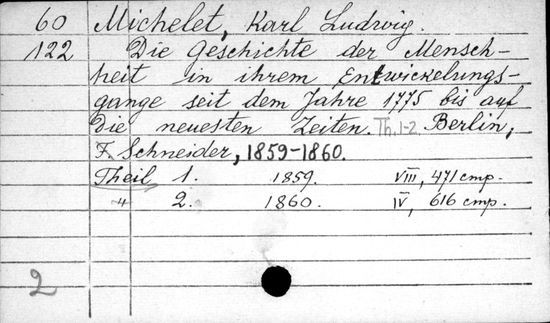 60 Michelet, Karl Ludwig.
122 Die Geschichte der Mensch-
heit in ihrem Entwickelungs-
gange seit dem Jahre 1775 bis auf
die neuesten Zeiten. Th. 1-2. Berlin,
F. Schneider, 1859-1860.
Theil 1. 1859. VIII, 471 cmp.
" 2. 1860. IV, 616 cmp.
2